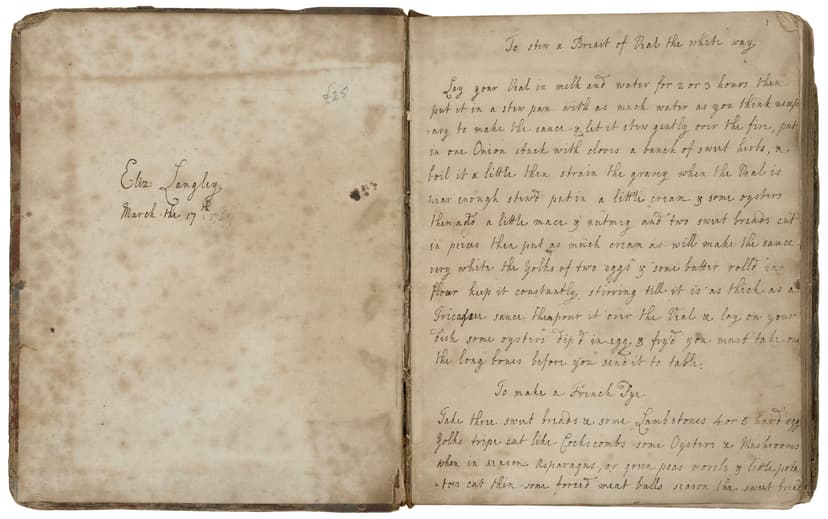 £25
Eliz: Langley,
March the 17th
1
To stew a Breast of Veal the white way,
Lay your Veal in milk and water for 2 or 3 hours then
put it in a stew pan with as much water as you think necess
:ary to make the sauce & let it stew gently over the fire, put
in one Onion stuck with cloves a bunch of sweet herbs,
boil it a little then strain the gravey when the Veal is
near enough stew'd put in a little cream & some oysters
then add a little mace & nutmeg and two sweet breads cut
in peices then put as much cream as will make the sauce
very white the Yolks of two eggs & some butter roll'd in
flour keep it constantly stirring till it is as thick as a
Fricasee sauce then pour it over the Veal & lay on your
dish some oysters dip'd in egg & fry'd you must take out
the long bones before you send it to table.
To make a French Pye
Take three sweet breads & some Lambstones 4 or 5 hard egg
Yolks tripe cut like Cockscombs some Oysters & Mushrooms
when in season Asparagus, or green peas morels & little pota
:toes cut then some forced meat balls season the sweet bread